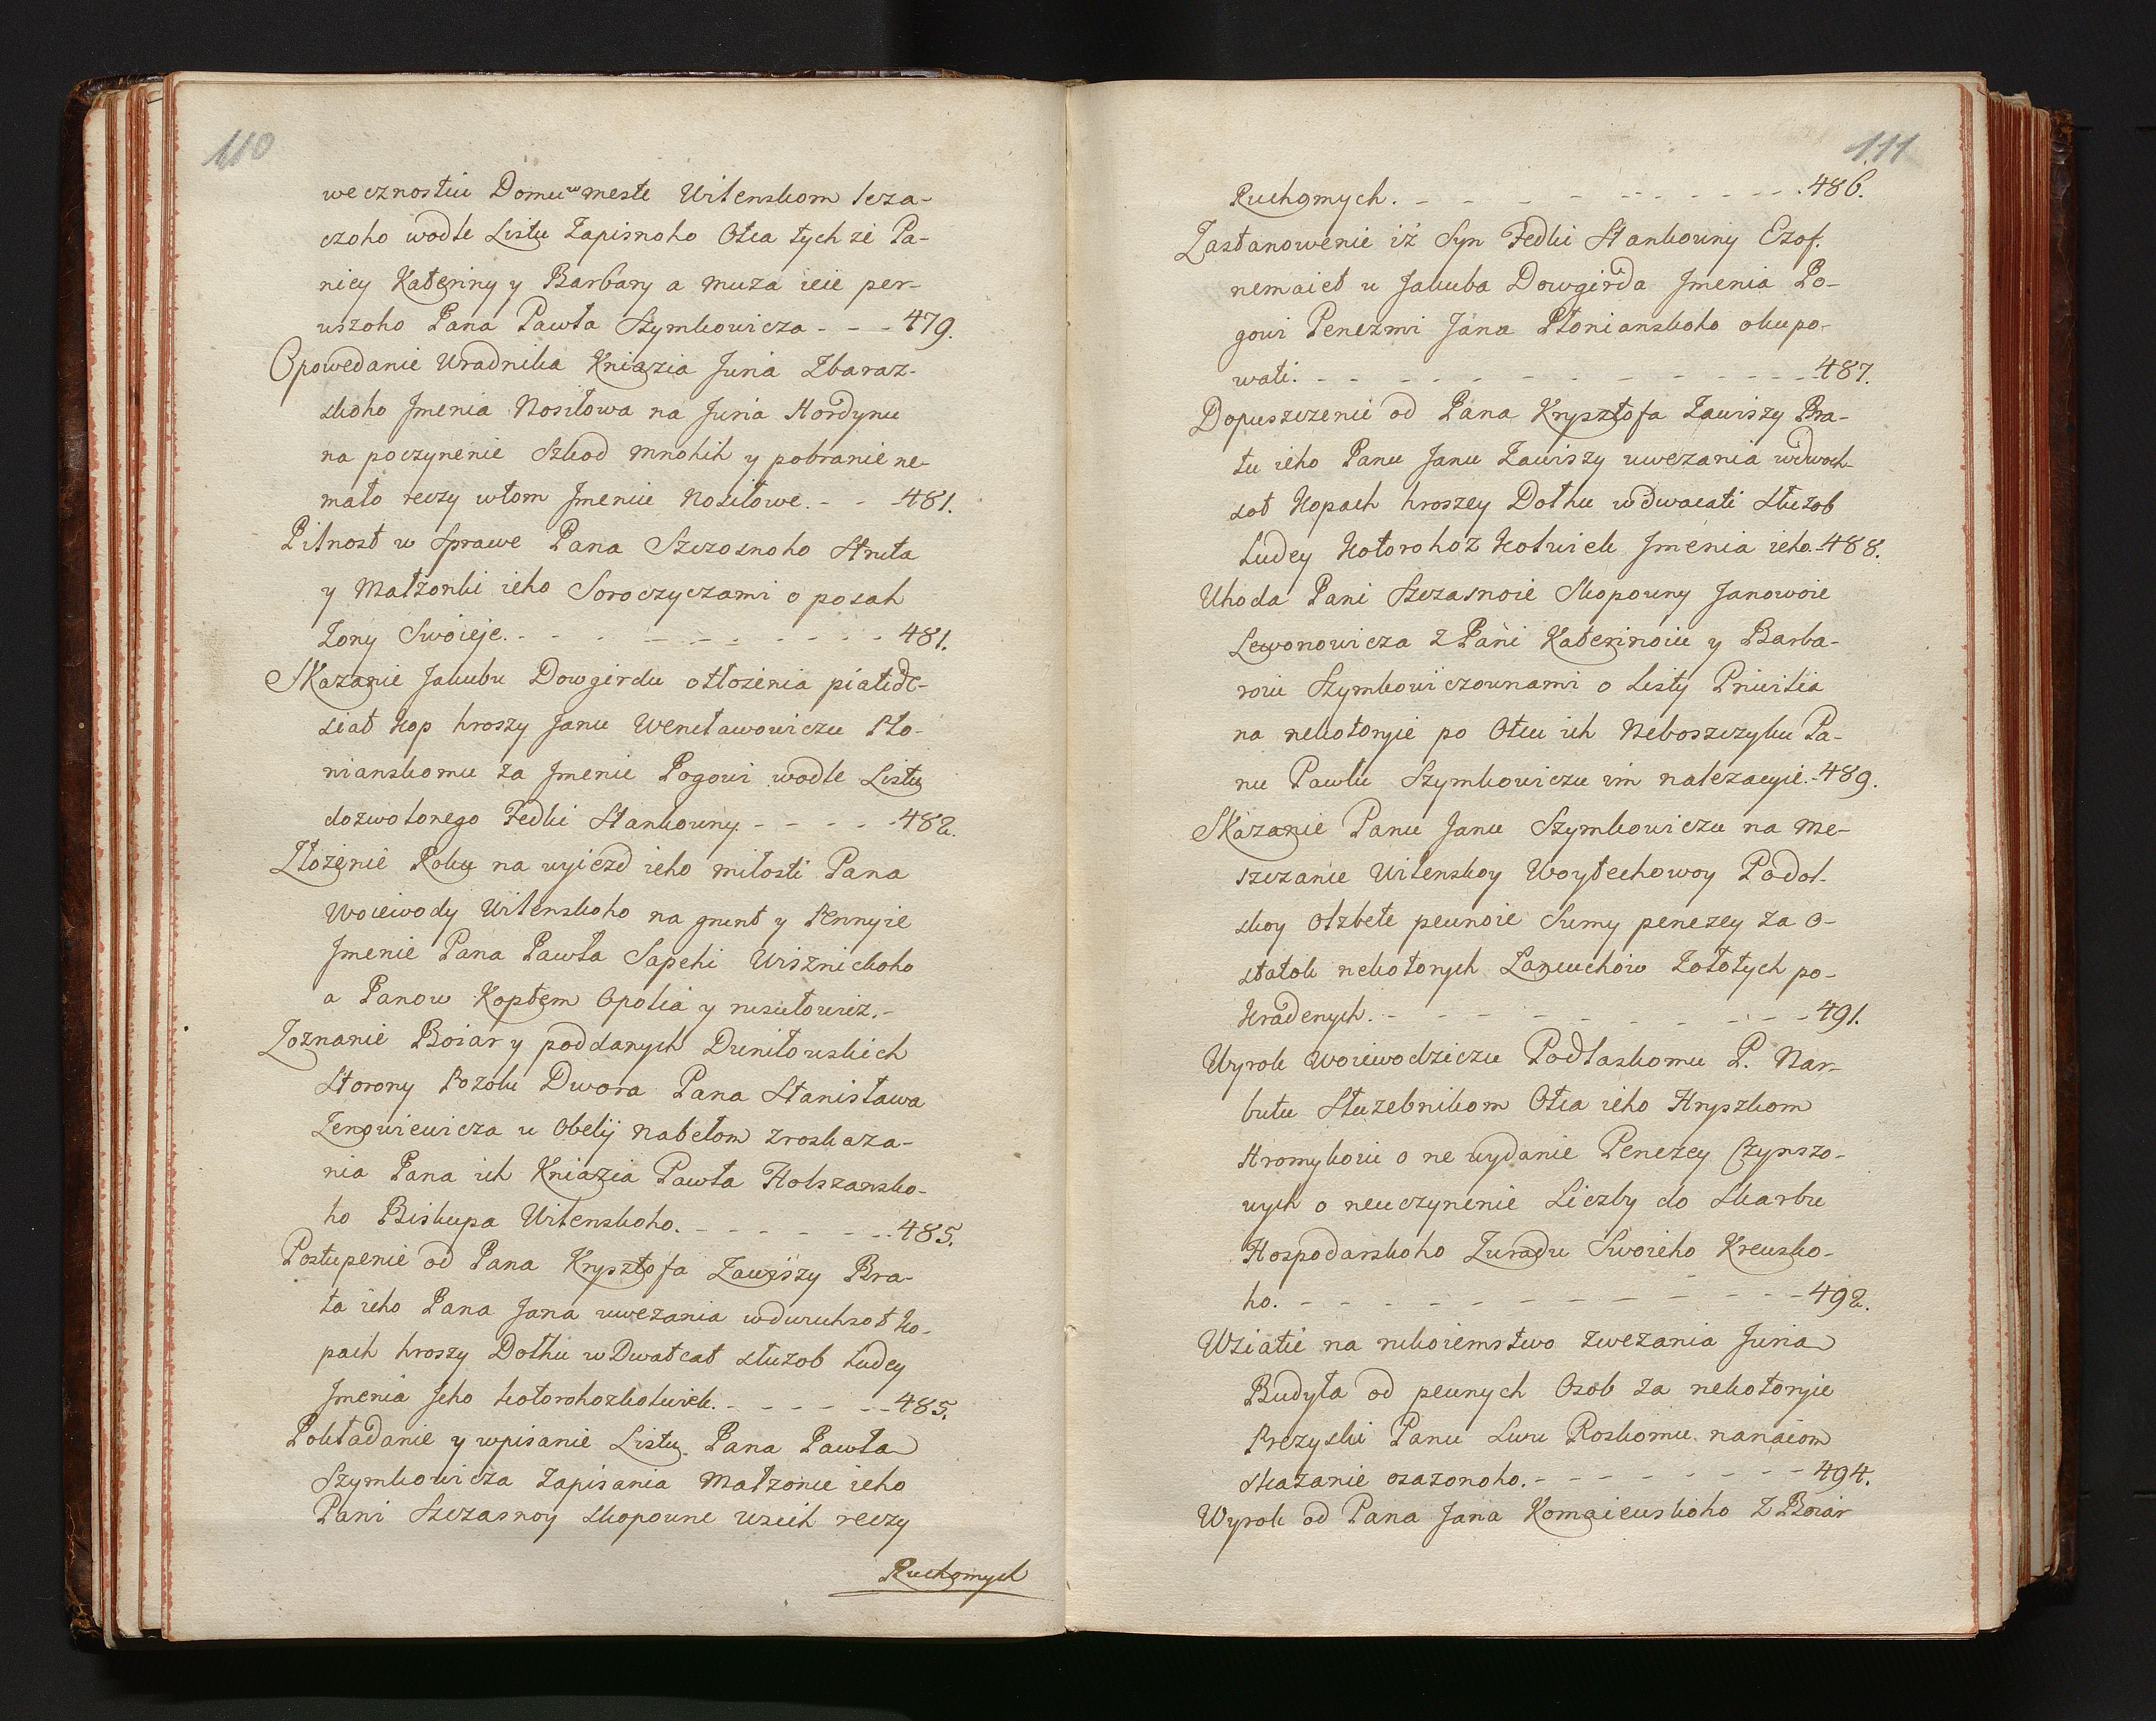 110
wecznostiu Domu w meste Wilenskom leza-
czoho wodle Listu Zapisnoho Otca tych ze Pa-
niey Kateriny y Barbary a muza ieie per-
uszoho Pana Pawła Szymkowicza - - - 479.
Opowedanie Uradnika Kniazia Juria Zbaraz-
skoho Jmenia Nosiłowa na Juria Hordynu
na poczynenie Szkod mnohih y pobranie ne-
mało reczy wtom Jmeniu Nosiłowe. - - - 481.
Pilnost w Sprawe Pana Szczosnoho Struta
y Małzonki ieho Soroczyczami o posah
Zony Swoieje. - - - - - - - - - 481.
Skazanie Jakubu Dowgirdu otłozenia piatide-
siat kop hroszy Janu Wencławowiczu Pło-
nianskomu za Jmenie Pogowi wodle Listu
dozwolonego Fedki Stankowny. - - - - - 482.
Złożenie Roku na wyiezd ieho miłosti Pana
Woiewody Wilenskoho na grunt y Pennyie
Jmenie Pana Pawła Sapehi Wisznickoho
a Panow Koptem Opokia y
Zoznanie Boiar y poddanych Duniłowskich
Storony Pozoku Dwora Pana Stanisława
Zenowiewicza u Obelij nabełom zroskaza-
nia Pana ich Kniazia Pawła Holszansko-
ho Biskupa Wilenskoho. - - - - - - - 485.
Postupenie od Pana Krysztofa Zawiszy Bra-
ta ieho Pana Jana uwezania wdwuchsot ko-
pach hroszy Dołhu w Dwatcat służob Ludey
Jmenia Jeho kotorohozkolwiek. - - - - - - 485.
Pokładanie y wpisanie Listu Pana Pawła
Szymkowicza Zapisania Małzonce ieho
Pani Szczasnoy Skopowne wsich reczy
Ruchomych
111
Ruchomych. - - - - - - - - - - 486.
Zastanowenie iż Syn Fedki Stankowny Czof.
nemaiet u Jakuba Dowgirda Jmenia Po-
gowi Penezmi Jana Płonianskoho okupo-
wati. - - - - - - - - - - - - 487.
Dopuszczenie od Pana Krysztofa Zawiszy Bra-
tu ieho Panu Janu Zawiszy uwezania wdwoch-
sot Kopach hroszey Dołhu w dwacati służob
Ludey Kotorohoz Kolwiek Jmenia ieho. - 488.
Uhoda Pani Szczasnoie Skopowny Janowoie
Lewonowicza z Pani Katerinoiu y Barba-
roiu Szymkowiczownami o Listy Priwilia
na nekotoryie po Otcu ich Neboszczyku Pa-
nu Pawlu Szymkowiczu im nalezacyie. - 489.
Skazanie Panu Janu Szymkowiczu na me-
szczanie Wilenskoy Woytechowoy Podol-
skoy Olzbete pewnoie Sumy penezey za o-
statok nekotorych Łancuchów Zołotych po-
kradenych. - - - - - - - - - - - 491.
Wyrok Woiewodziczu Podlaskomu P. Nar-
butu Służebnikom Otca ieho Hryszkom
Hromykoiu o ne wydanie Penezey Czynszo-
wych o neuczynenie Liczby do Skarbu
Hospodarskoho Zuradu Swoieho Krewsko-
ho. - - - - - - - - - - - - 492.
Wziatie na rukoiemstwo zwezania Juria
Budyła od pewnych Osob za nekotoryie
Prezyski Panu Lwu Roskomu nanaiom
skazanie osazonoho. - - - - - - - - 494.
Wyrok od Pana Jana Komaiewskoho z Boiar